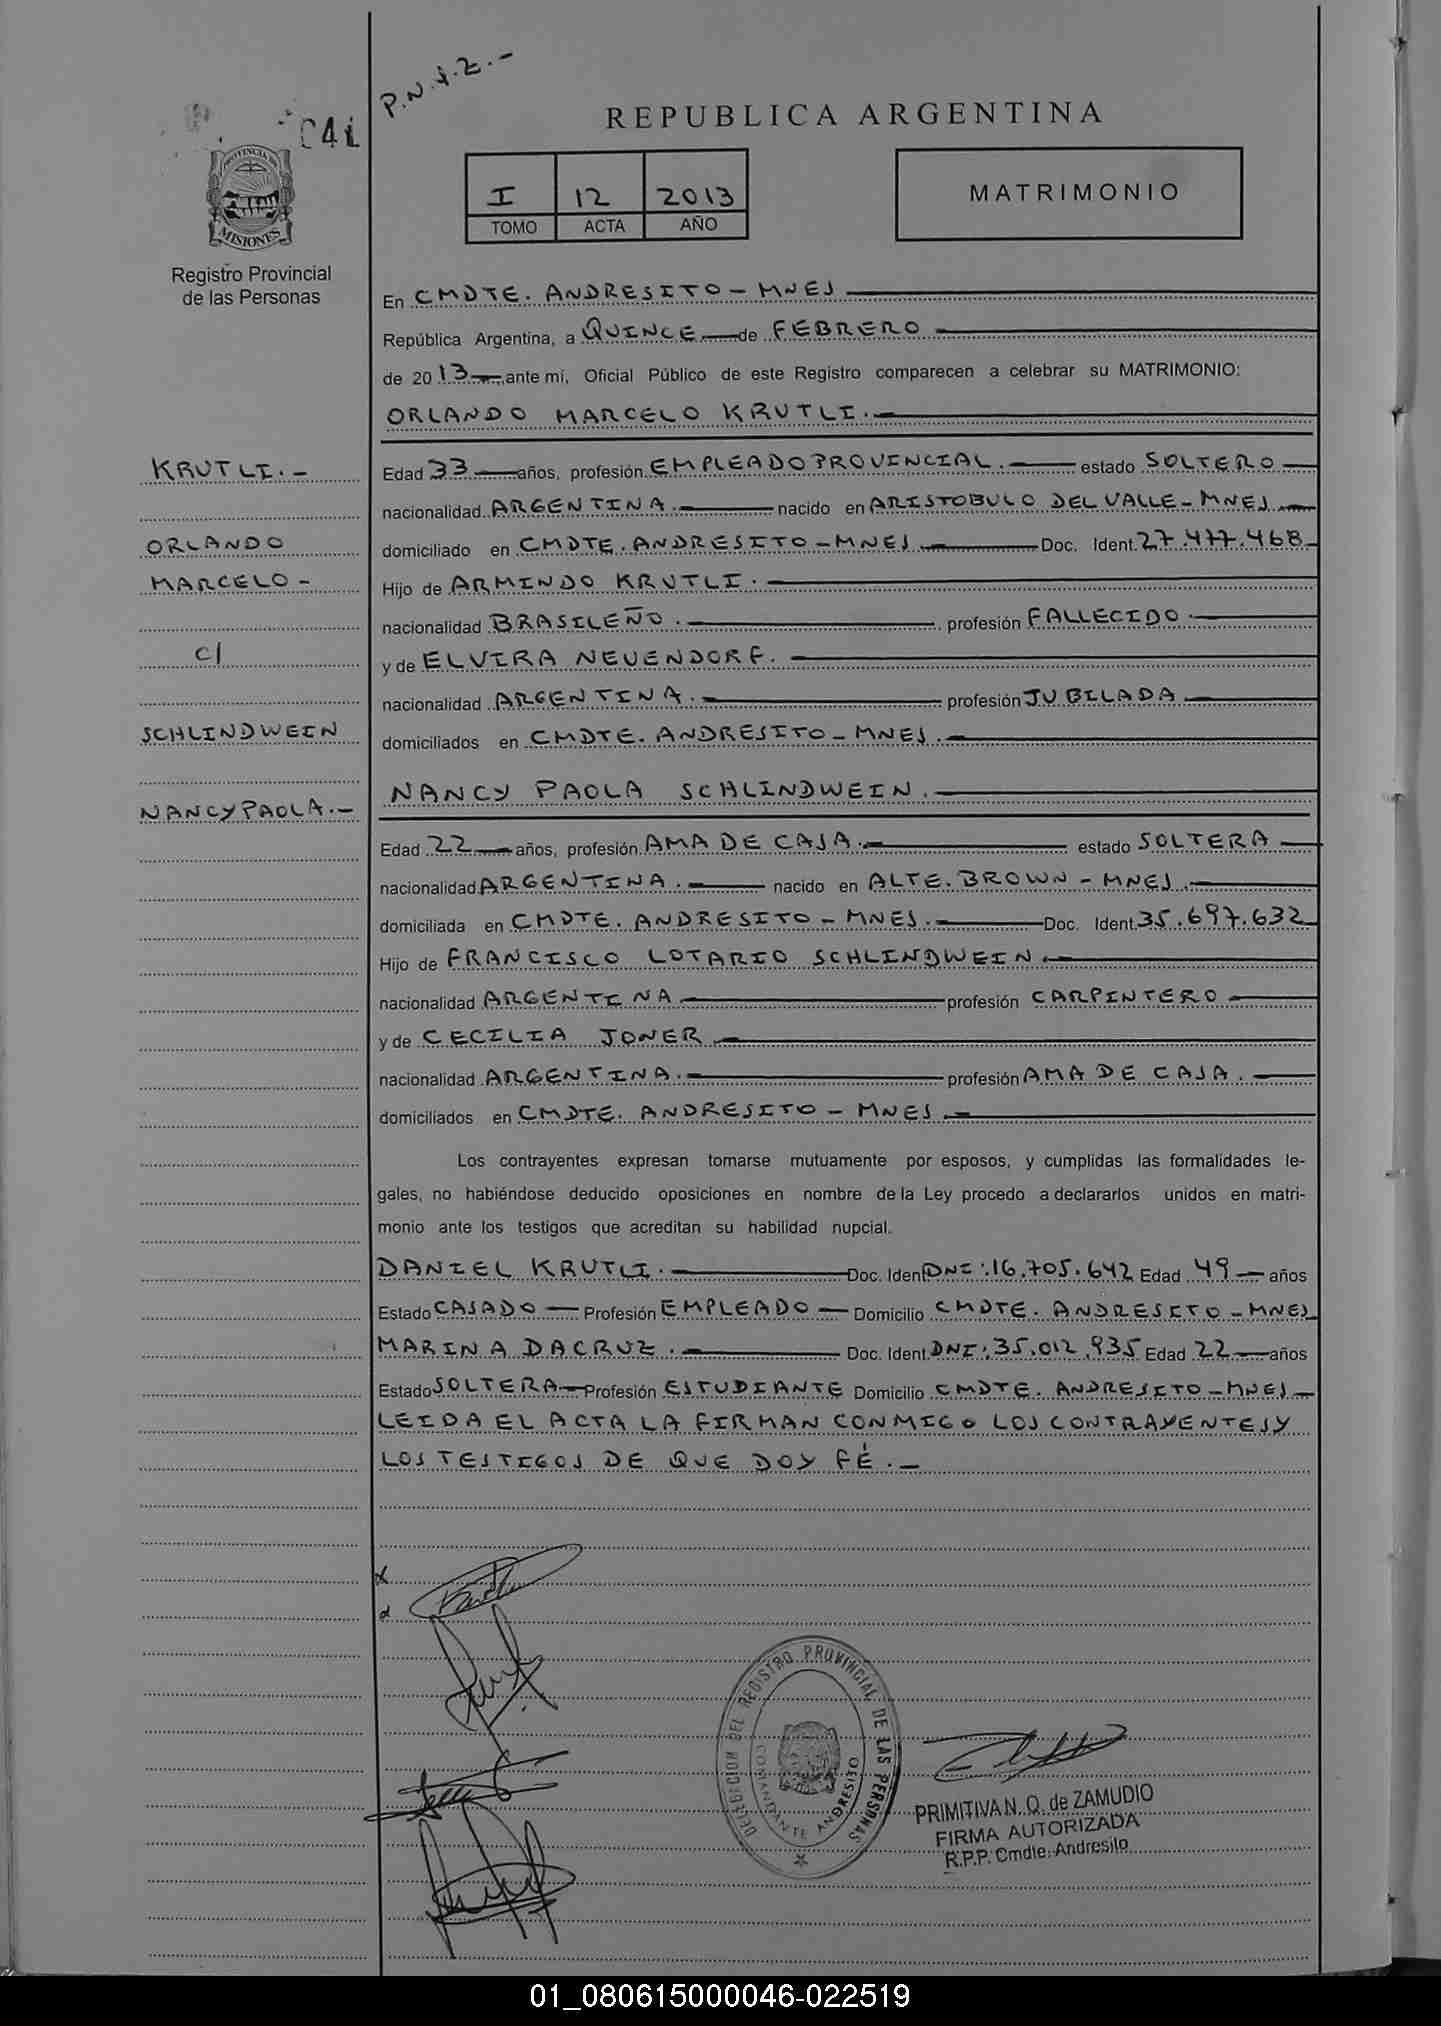 P.N.1.2.-
041
REPUBLICA ARGENTINA
PROVINCIA DE
MISIONES
I 12 2013
TOMO ACTA AÑO
MATRIMONIO
Registro Provincial
de las Personas
En CMDTE. ANDRESITO - MNES
República Argentina, a QUINCE de FEBRERO
de 2013 ante mí, Oficial Público de este Registro comparecen a celebrar su MATRIMONIO:
ORLANDO MARCELO KRUTLI.-
KRUTLI.-
ORLANDO
MARCELO -
C/
SCHLINDWEIN
NANCY PAOLA.-
Edad 33 años, profesión EMPLEADO PROVINCIAL.- estado SOLTERO
nacionalidad ARGENTINA.- nacido en ARISTOBULO DEL VALLE - MNES.-
domiciliado en CMDTE. ANDRESITO - MNES.- Doc. Ident. 27.477.468-
Hijo de ARMINDO KRUTLI.-
nacionalidad BRASILEÑO.- profesión FALLECIDO.-
y de ELVIRA NEUENDORF.-
nacionalidad ARGENTINA.- profesión JUBILADA
domiciliados en CMDTE. ANDRESITO - MNES.-
NANCY PAOLA SCHLINDWEIN.-
Edad 22 años, profesión AMA DE CASA.- estado SOLTERA
nacionalidad ARGENTINA.- nacido en ALTE. BROWN - MNES.-
domiciliada en CMDTE. ANDRESITO - MNES.- Doc. Ident. 35.697.632
Hijo de FRANCISCO LOTARIO SCHLINDWEIN.-
nacionalidad ARGENTINA profesión CARPINTERO
y de CECILIA JONER
nacionalidad ARGENTINA.- profesión AMA DE CASA.-
domiciliados en CMDTE. ANDRESITO - MNES.-
Los contrayentes expresan tomarse mutuamente por esposos, y cumplidas las formalidades le-
gales, no habiéndose deducido oposiciones en nombre de la Ley procedo a declararlos unidos en matri-
monio ante los testigos que acreditan su habilidad nupcial.
DANIEL KRUTLI.- Doc. Ident DNI:16.705.642 Edad 49 años
Estado CASADO Profesión EMPLEADO Domicilio CMDTE. ANDRESITO - MNES
MARINA DACRUZ.- Doc. Ident. DNI:35.012.935 Edad 22 años
Estado SOLTERA Profesión ESTUDIANTE Domicilio CMDTE. ANDRESITO - MNES
LEIDA EL ACTA LA FIRMAN CONMIGO LOS CONTRAYENTES Y
LOS TESTIGOS DE QUE DOY FÉ.-
DELEGACION DEL REGISTRO PROVINCIAL DE LAS PERSONAS
COMANDANTE ANDRESITO
PRIMITIVA N. O. de ZAMUDIO
FIRMA AUTORIZADA
R.P.P. Cmdte. Andresito
01_080615000046-022519